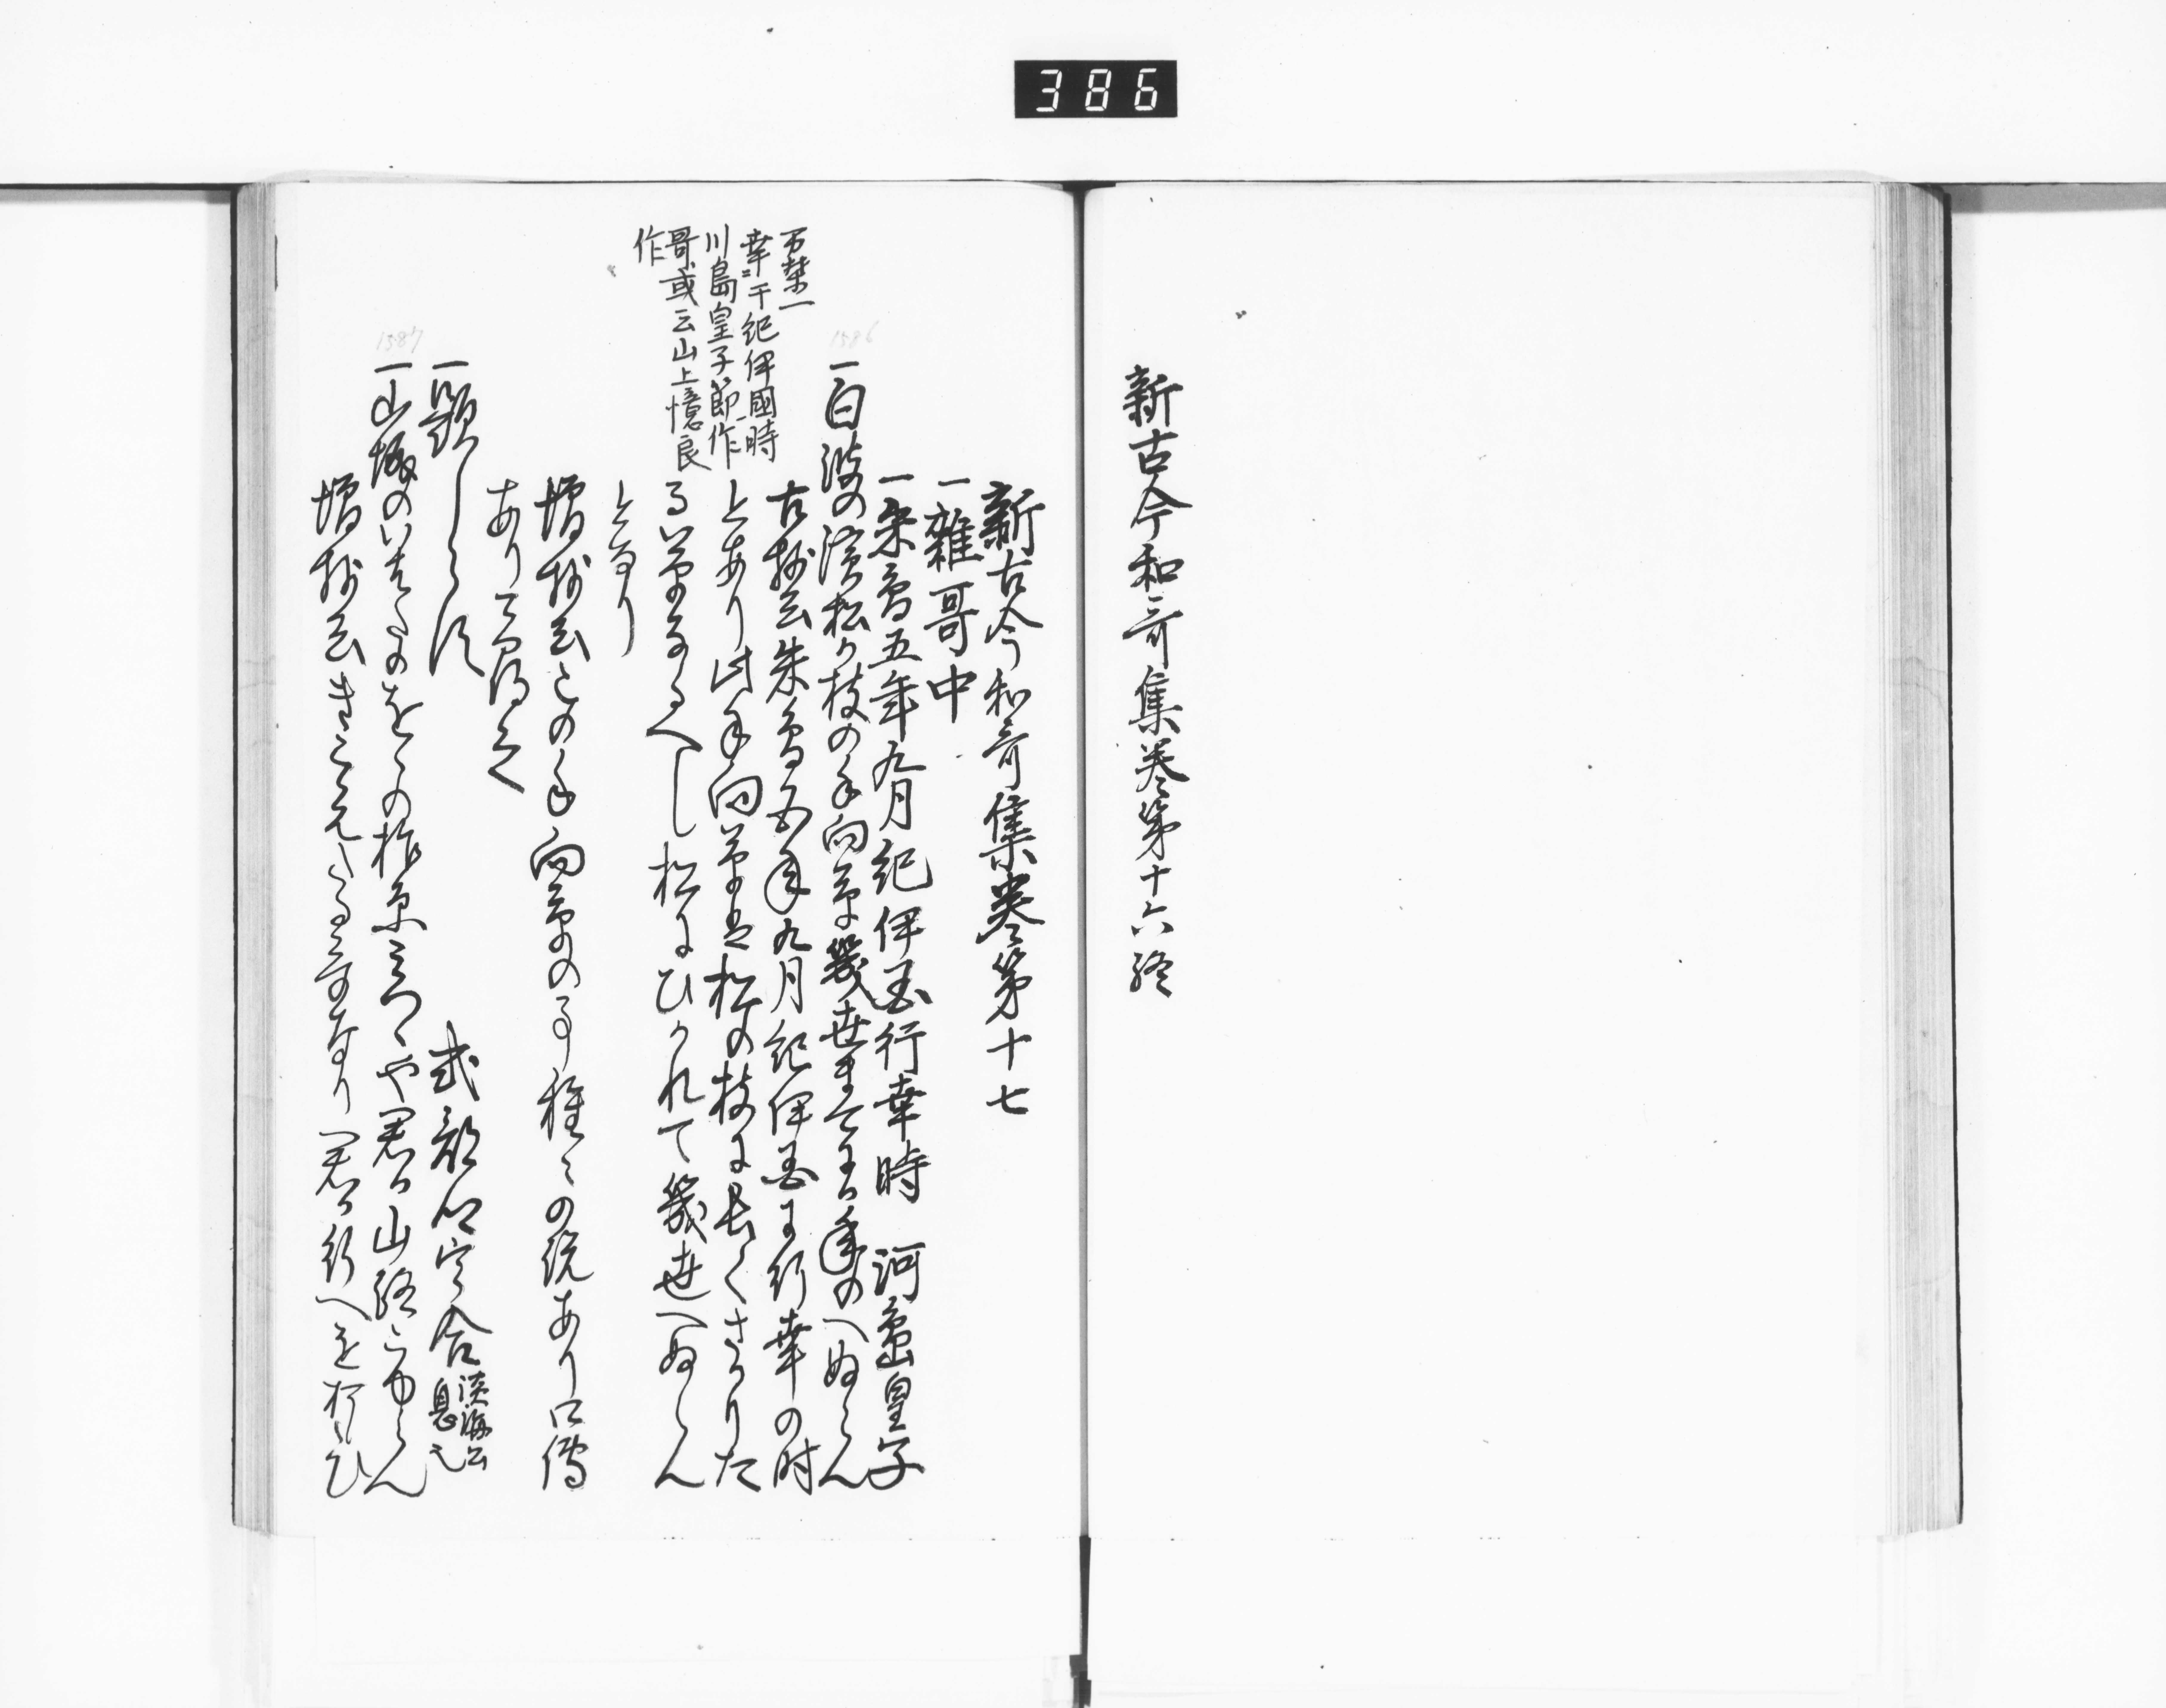 386
新古今和哥集巻第十六終
新古今和哥集巻第十七
一雑哥中
一朱鳥五年九月紀伊国行幸時 河島皇子
1586
一白波の濱松か枝の手向草幾世まてにか年のへぬらん
古抄云朱鳥五年九月紀伊国に行幸の時
とあり此手向草は松の枝に長くさかりた
る草なるへし松にひかれて幾世へぬらん
となり
増抄云この手向草の事種々の説あり口傳
ありて
万葉一
幸于紀伊國時
川島皇子節作
哥或云山上憶良
作
一題しらす 式部卿宇合 淡海公息也
1587
一山城のいはたのをのの柞原みつゝや君か山路こゆらん
増抄云きこえたる哥なり君か行へを思ひ